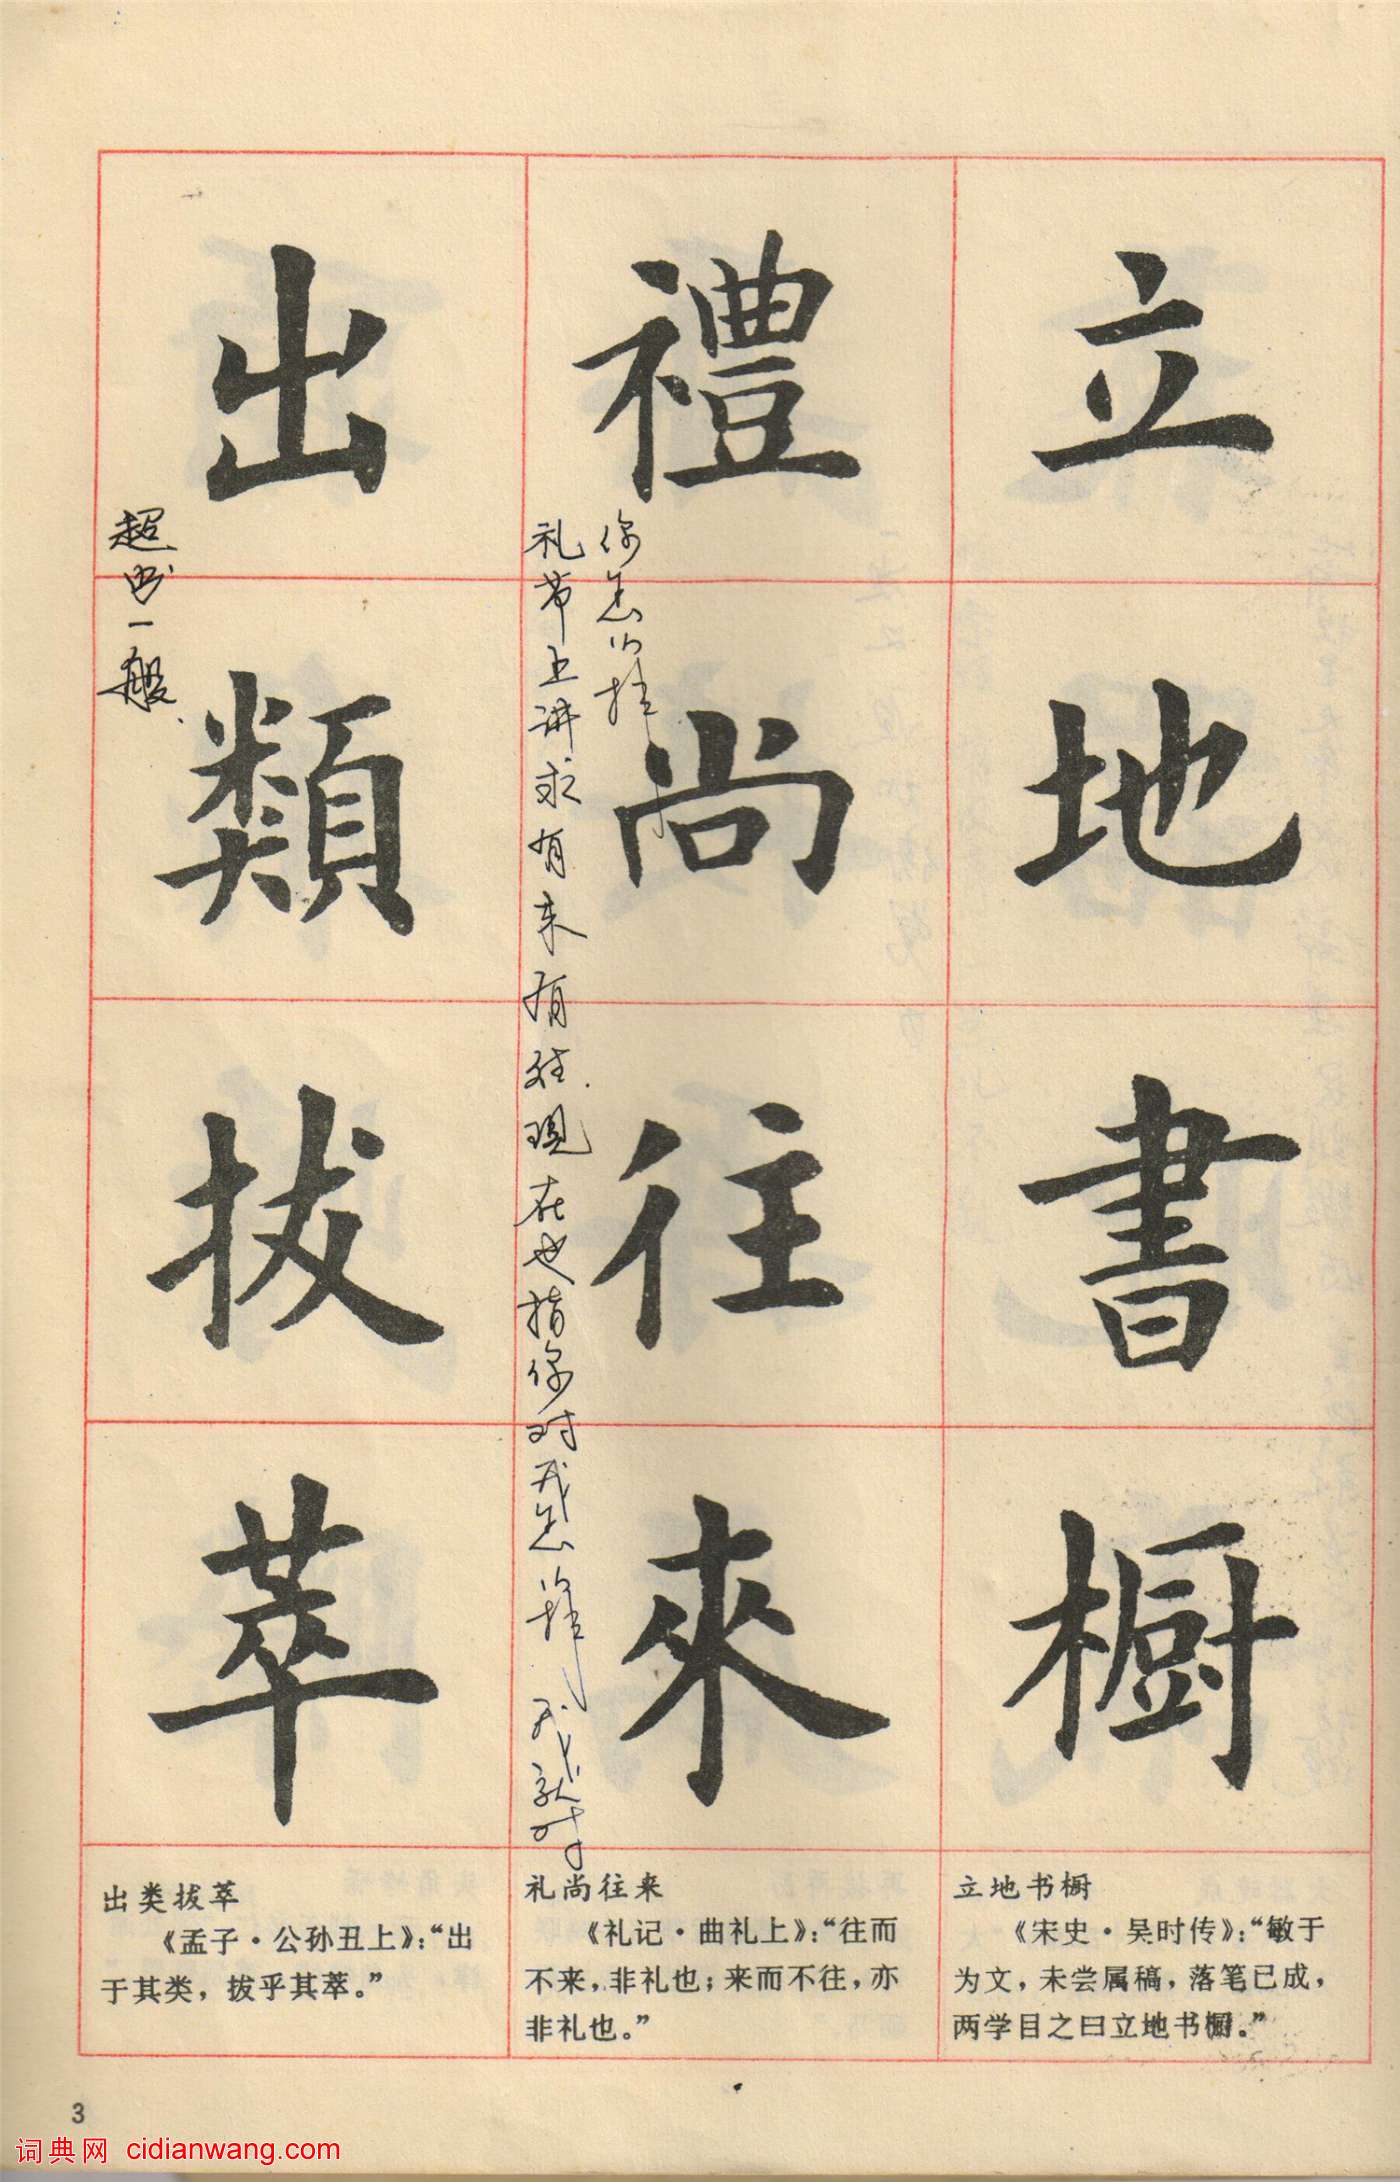 立地書橱
禮尚往來
出類拔萃
你怎么样
礼节上讲求有来有往.现在也指你对我怎么样我就对
超出一般.
立地书橱
《宋史·吴时传》:“敏于
为文，未尝属稿，落笔已成，
两学目之曰立地书橱。”
礼尚往来
《礼记·曲礼上》:“往而
不来，非礼也；来而不往，亦
非礼也。”
出类拔萃
《孟子·公孙丑上》:“出
于其类，拔乎其萃。”
3
词典网 cidianwang.com